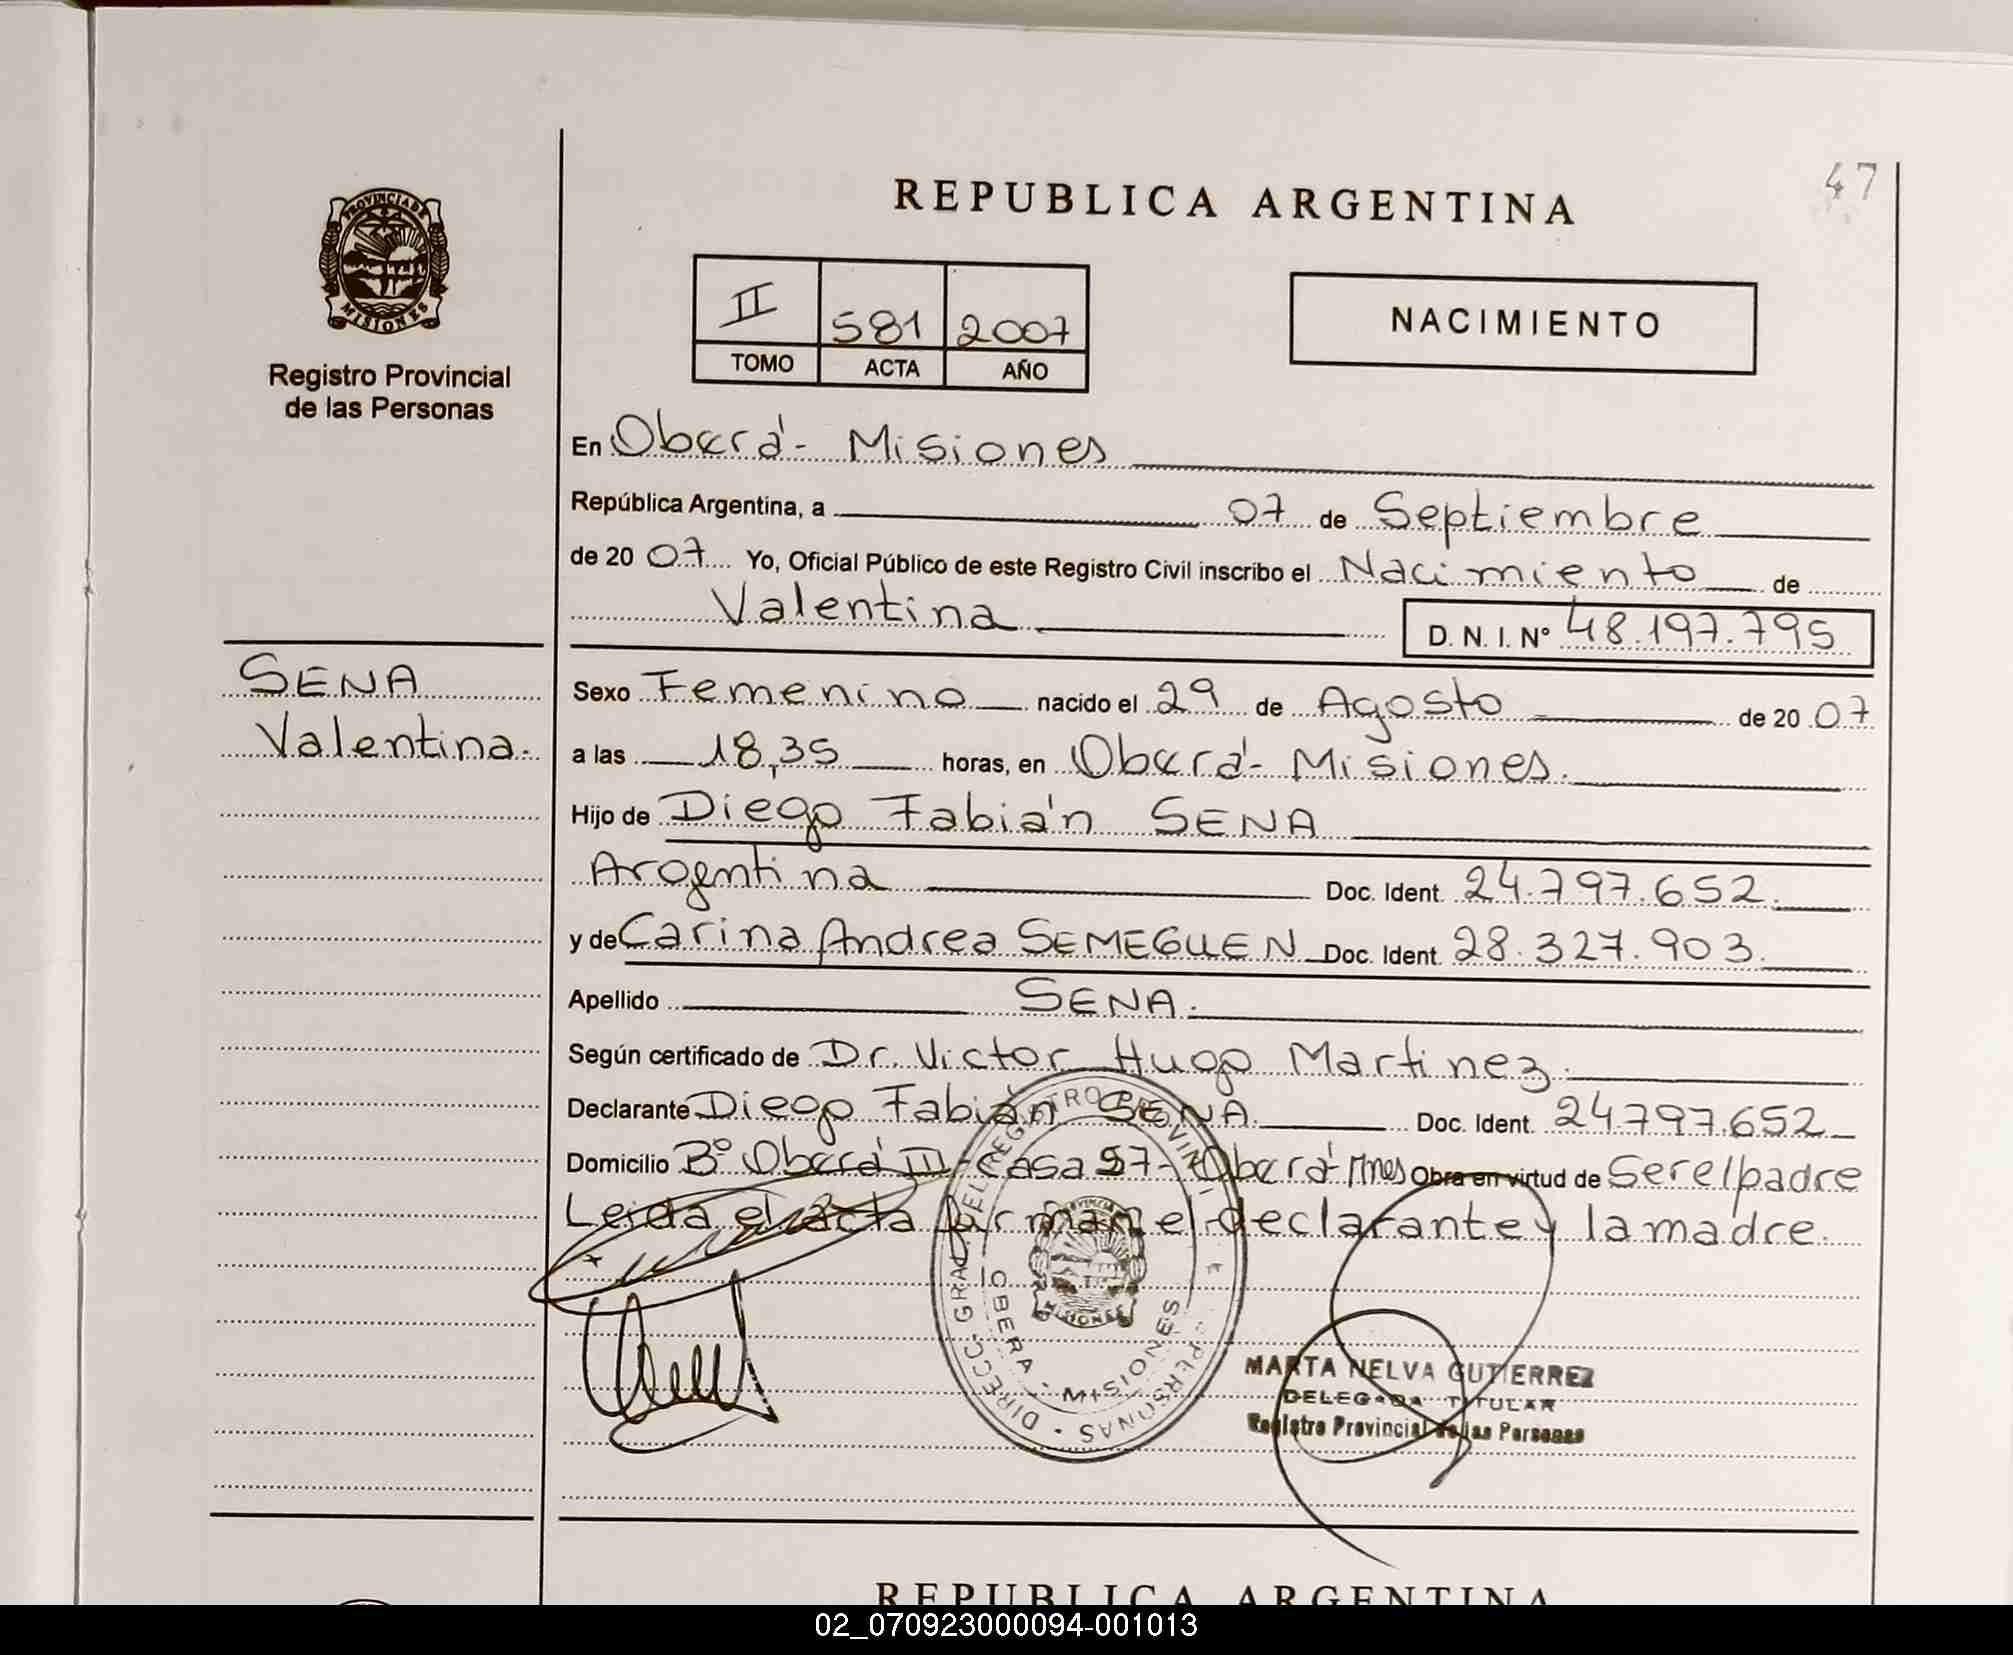 47
REPUBLICA ARGENTINA
PROVINCIA DE
MISIONES
Registro Provincial
de las Personas
II 581 2007
TOMO ACTA AÑO
NACIMIENTO
En Oberá - Misiones
República Argentina, a 07 de Septiembre
de 20 07 Yo, Oficial Público de este Registro Civil inscribo el Nacimiento de
Valentina
D. N. I. Nº 48.197.795
SENA
Valentina.
Sexo Femenino nacido el 29 de Agosto de 20 07
a las 18,35 horas, en Oberá - Misiones.
Hijo de Diego Fabián SENA
Argentina Doc. Ident. 24.797.652.
y de Carina Andrea SEMEGUEN Doc. Ident. 28.327.903.
Apellido SENA.
Según certificado de Dr. Victor Hugo Martinez.
Declarante Diego Fabián SENA Doc. Ident. 24.797.652
Domicilio Bº Oberá III - Casa 97 - Oberá - Mnes Obra en virtud de Ser el padre
Leida el acta firman el declarante y la madre.
DIRECC. GRAL. DEL REGISTRO PROVINCIAL PERSONAS
OBERA - MISIONES
MISIONES
MARTA NELVA GUTIERREZ
DELEGADA TITULAR
Registro Provincial de las Personas
REPUBLICA ARGENTINA
02_070923000094-001013